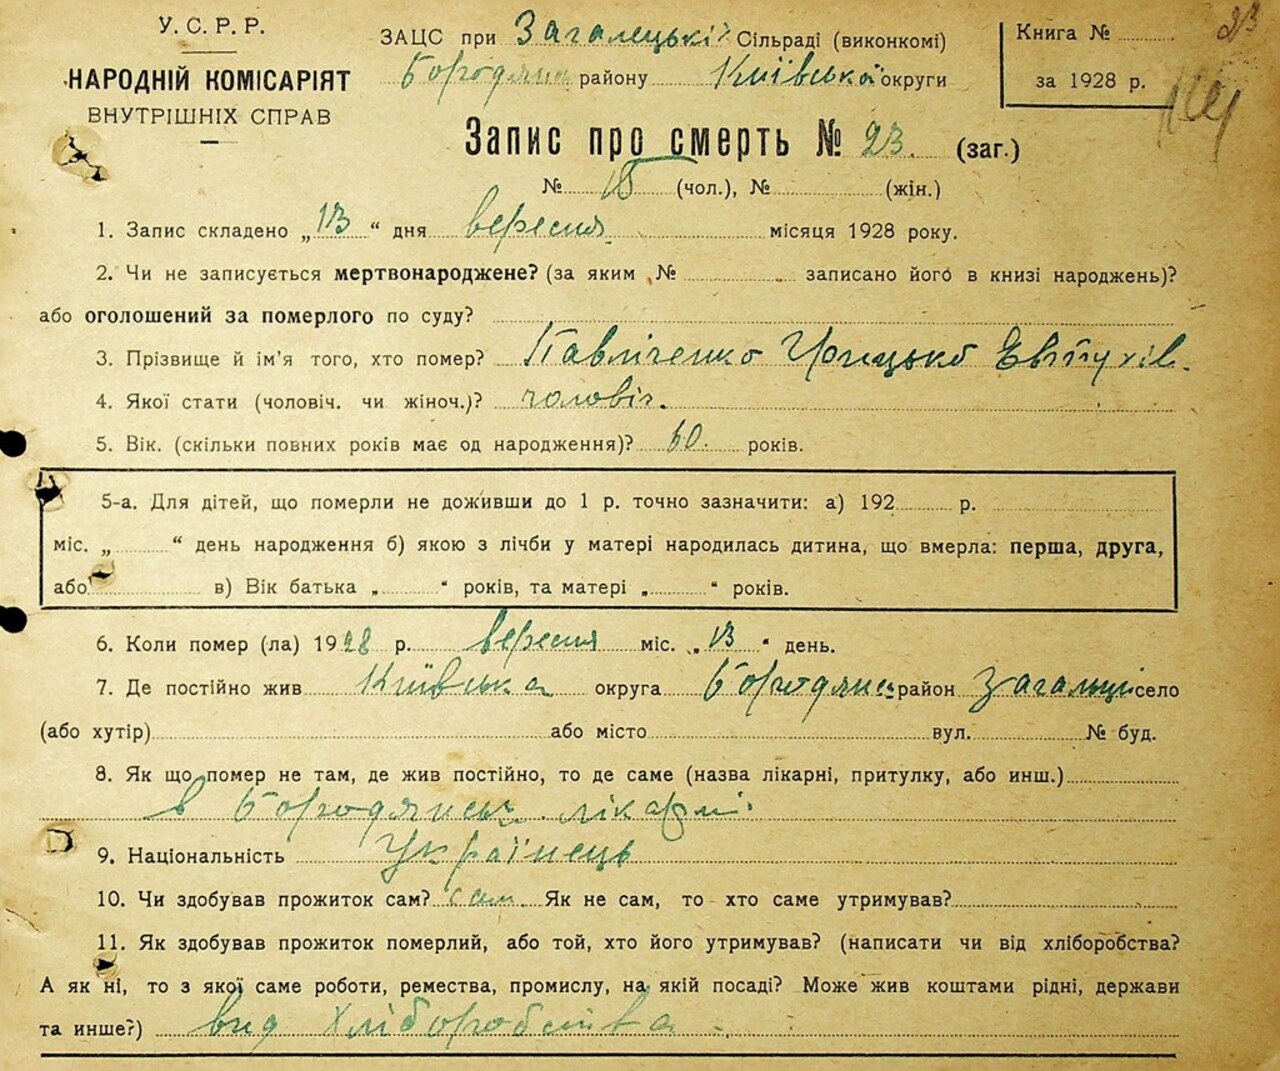 У. С. Р. Р.
НАРОДНІЙ КОМІСАРІЯТ
ВНУТРІШНІХ СПРАВ
ЗАЦС при Загалецькій Сільраді (виконкомі)
Бородянськ району Київської округи
Книга №
за 1928 р.
23
Запис про смерть № 23. (заг.)
№ 15 (чол.), № (жін.)
1. Запис складено „13“ дня вересня місяця 1928 року.
2. Чи не записується мертвонароджене? (за яким № записано його в книзі народжень)?
або оголошений за померлого по суду?
3. Прізвище й ім'я того, хто помер? Павліченко Грицько Евтухів.
4. Якої стати (чоловіч. чи жіноч.)? чоловіч.
5. Вік. (скільки повних років має од народження)? 60. років.
5-а. Для дітей, що померли не доживши до 1 р. точно зазначити: а) 192 р.
міс. „ “ день народження б) якою з лічби у матері народилась дитина, що вмерла: перша, друга,
або в) Вік батька „ “ років, та матері „ “ років.
6. Коли помер (ла) 1928 р. вересня міс. „13“ день.
7. Де постійно жив Київська округа Бородянськ район Загальці село
(або хутір) або місто вул. № буд.
8. Як що помер не там, де жив постійно, то де саме (назва лікарні, притулку, або инш.)
в Бородянськ. лікарні.
9. Національність Українець
10. Чи здобував прожиток сам? сам. Як не сам, то хто саме утримував?
11. Як здобував прожиток померлий, або той, хто його утримував? (написати чи від хліборобства?
А як ні, то з якої саме роботи, ремества, промислу, на якій посаді? Може жив коштами рідні, держави
та инше?) вид хліборобства.